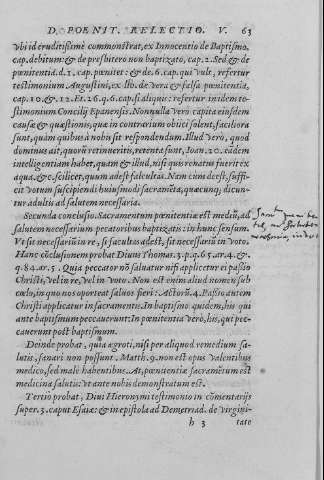 D. POENIT. RELECTIO. V. 63
Vbi id eruditissime commonstrat, ex Innocentio de Baptismo,
cap. debitum: & de presbitero non baptizato, cap. 2. Sed & de
pœnitentia. d. 1. cap. pœniter: & de. 6. cap. qui vult, refertur
testimonium Augustini, ex lib. de vera & falsa pœnitentia,
cap. 10. & 12. Et. 26. q. 6. cap. si aliquis: refertur in idem te-
stimonium Concilij Epanensis. Nonnulla verò capita eiusdem
causæ & quæstionis, quæ in contrarium obijci solent, faciliora
sunt, quàm quibus à nobis sit respondendum. Illud verò, quod
dominus ait, quorū retinueritis, retenta sunt, Ioan. 20. eādem
intelligentiam habet, quam & illud, nisi quis renatus fuerit ex
aqua, &c. scilicet, quum adest facultas. Nam cùm deest, suffi-
cit votum suscipiendi huiusmodi sacramēta, quæcunq; dicun-
tur adultis ad salutem necessaria.
Secunda conclusio. Sacramentum pœnitentiæ est mediū, ad
salutem necessarium peccatoribus baptizatis: in hunc sensum.
Vt sit necessariū in re, si facultas adest, sit necessariū in voto.
Hanc cōclusionem probat Diuus Thomas. 3. p. q. 65. ar. 4. &.
q. 84. ar. 5. Quia peccator nō saluatur nisi applicetur ei passio
Christi, vel in re, vel in voto. Non est enim aliud nomen sub
cœlo, in quo nos oporteat saluos fieri. Actorū. 4. Passio autem
Christi applicatur in sacramentis. In baptismo quidem, his qui
ante baptismum peccauerunt: In pœnitentia verò, his, qui pec-
cauerunt post baptismum.
Deinde probat, quia ægroti, nisi per aliquod remedium sa-
lutis, sanari non possunt. Matth. 9. non est opus valentibus
medico, sed malè habentibus. At, pœnitentiæ sacramētum est
medicina salutis: vt ante nobis demonstratum est.
Tertio probat, Diui Hieronymi testimonio in cōmentarijs
super. 3. caput Esaiæ: & in epistola ad Demetriad. de virgini-
h 3 tate